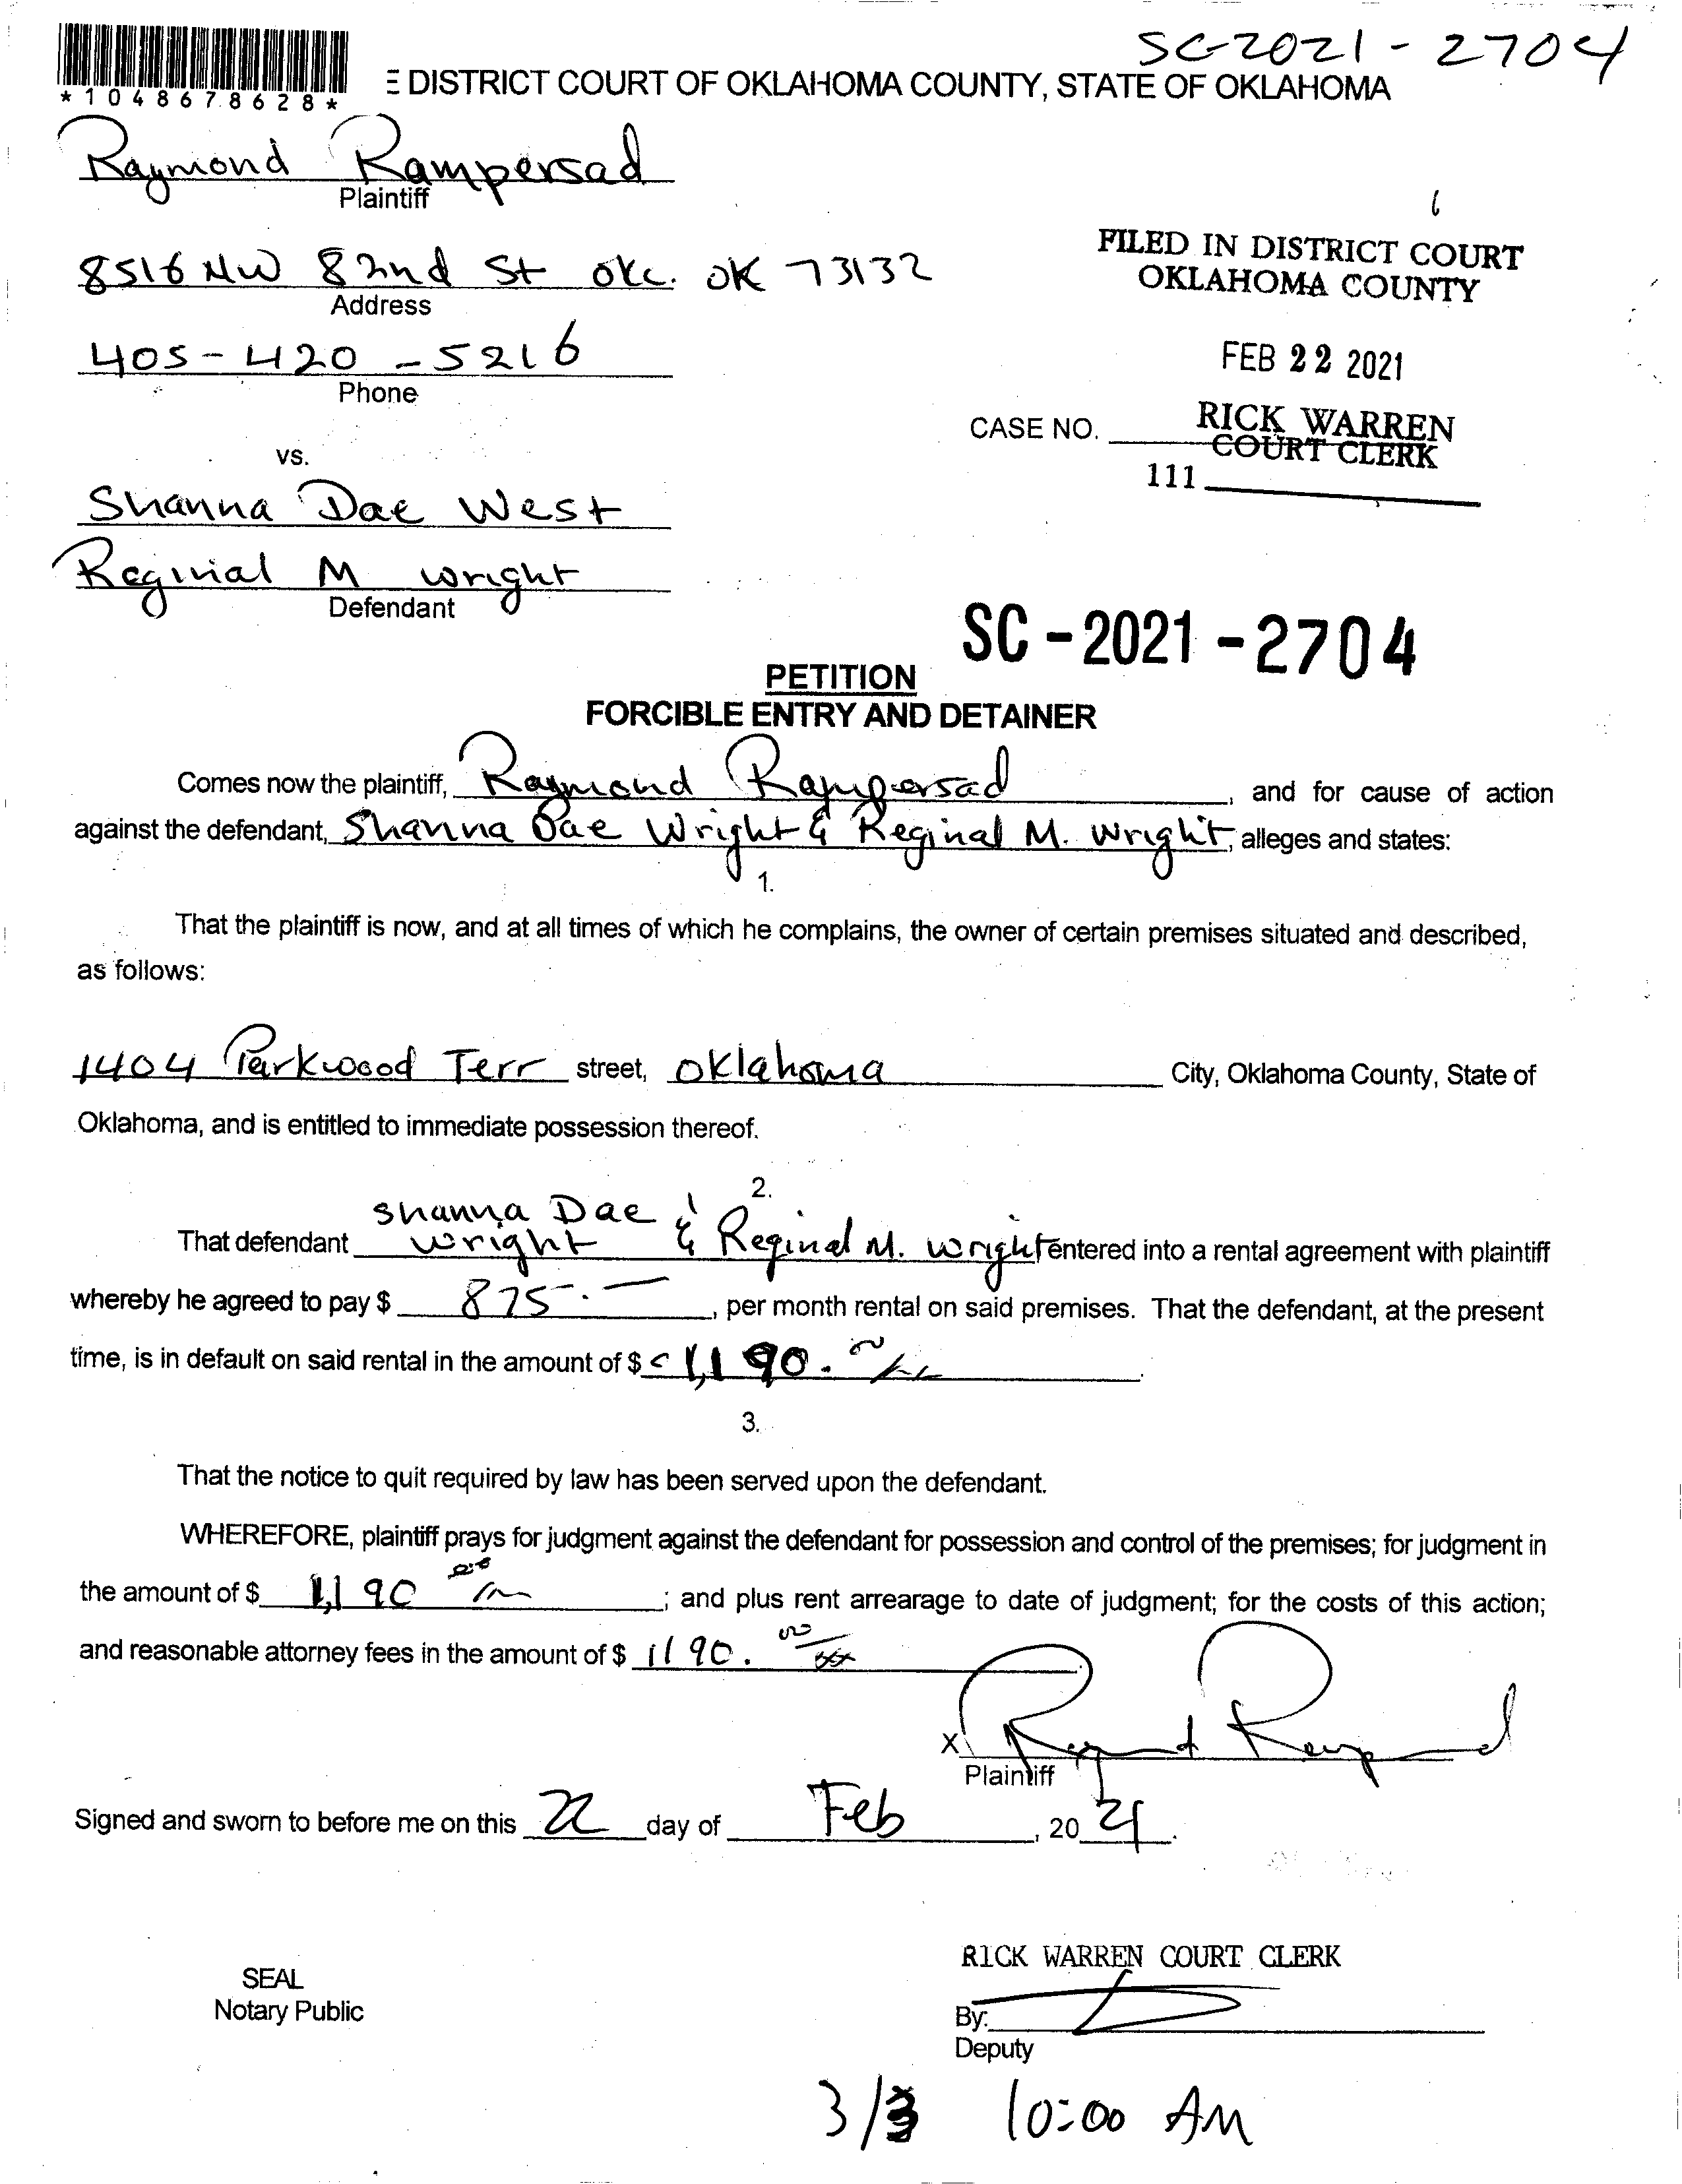 SC-2021-2704
*1048678628*
E DISTRICT COURT OF OKLAHOMA COUNTY, STATE OF OKLAHOMA
Raymond Rampersad
Plaintiff
8516 NW 82nd St OKC. OK 73132
Address
405-420-5216
Phone
FILED IN DISTRICT COURT
OKLAHOMA COUNTY
FEB 22 2021
RICK WARREN
COURT CLERK
CASE NO.
111
vs.
Shanna Dae West
Reginial M Wright
Defendant
SC-2021-2704
PETITION
FORCIBLE ENTRY AND DETAINER
Comes now the plaintiff, Raymond Rampersad, and for cause of action
against the defendant, Shanna Dae Wright & Reginal M. Wright, alleges and states:
1.
That the plaintiff is now, and at all times of which he complains, the owner of certain premises situated and described,
as follows:
1404 Parkwood Terr street, Oklahoma City, Oklahoma County, State of
Oklahoma, and is entitled to immediate possession thereof.
2.
That defendant Shanna Dae Wright & Reginal M. Wright entered into a rental agreement with plaintiff
whereby he agreed to pay $ 875.—, per month rental on said premises. That the defendant, at the present
time, is in default on said rental in the amount of $ 1,190.
3.
That the notice to quit required by law has been served upon the defendant.
WHEREFORE, plaintiff prays for judgment against the defendant for possession and control of the premises; for judgment in
the amount of $ 1,190; and plus rent arrearage to date of judgment; for the costs of this action;
and reasonable attorney fees in the amount of $ 1190.
X Raymond Rampersad
Plaintiff
Signed and sworn to before me on this 22 day of Feb, 2021.
SEAL
Notary Public
RICK WARREN COURT CLERK
By:
Deputy
3/3 10:00 AM